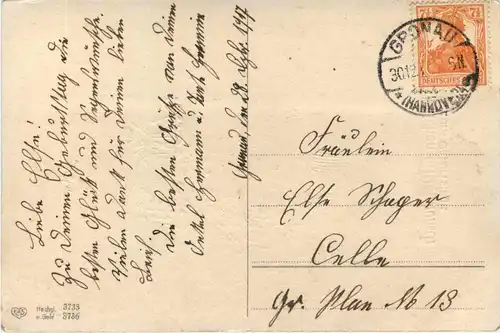 Liebe Else!
Zu Deinem Geburtstag die
besten Glück und Segenswünsche.
Vielen Dank für Deinen lieben
Brief.
Die besten Grüße von Deinem
Onkel Hermann u. Tante Hermine
Gronau, den 28. 1917
GRONAU
30.12.
*(HANNOVER)
7½ 7½
DEUTSCHES
Fräulein
Else Schaper
Celle
Gr. Plan No 13
EAS
Hochgl. 3733
u. Gold 3736